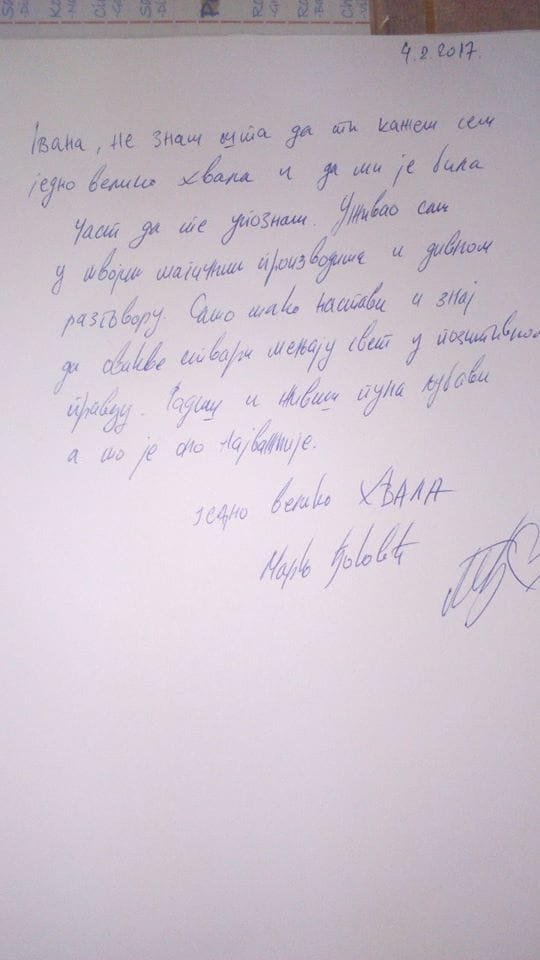 4.2.2017.
Ивана, не знам шта да ти кажем сем
једно велико хвала и да ми је била
част да те упознам. Уживао сам
у твојим магичним производима и дивном
разговору. Само тако настави и знај
да овакве ствари мењају свет у позитивном
правцу. Радиш и живиш пуна љубави
а то је оно најважније.
једно велико ХВАЛА
Марко